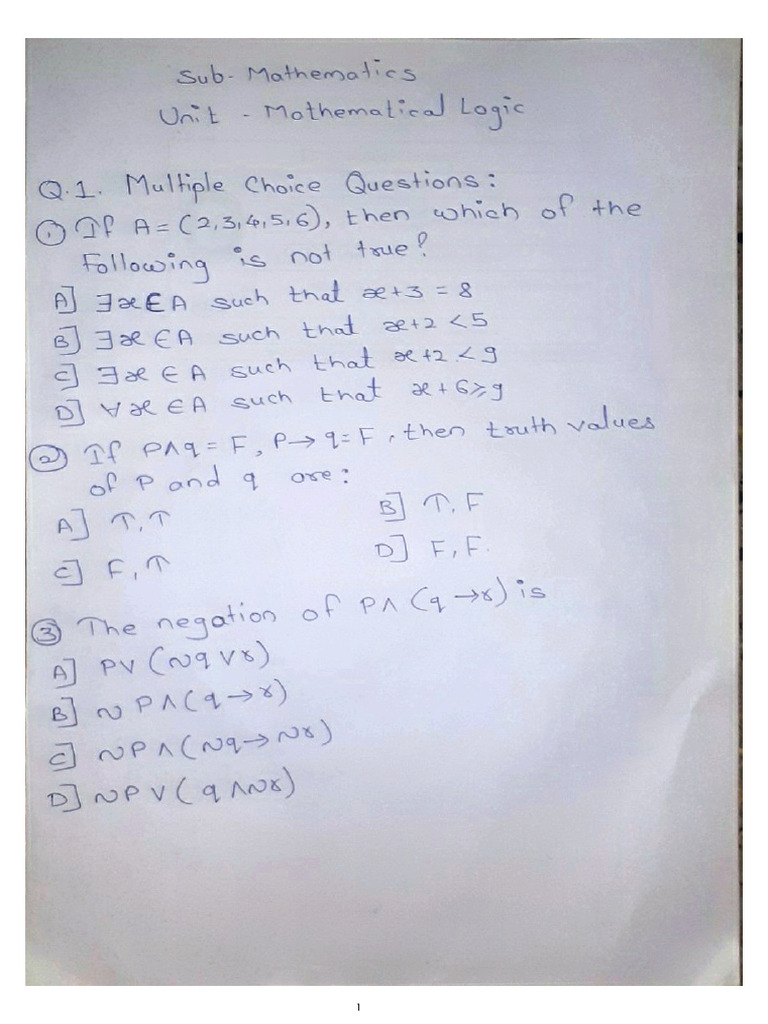 Sub- Mathematics
Unit - Mathematical Logic
Q.1. Multiple Choice Questions:
① If A = (2,3,4,5,6), then which of the
following is not true?
A] ∃x∈A such that x+3 = 8
B] ∃x∈A such that x+2 < 5
C] ∃x∈A such that x+2 < 9
D] ∀x∈A such that x+6 ≥ 9
② If P∧q = F, P→q = F, then truth values
of P and q are:
A] T, T B] T, F
C] F, T D] F, F.
③ The negation of P∧(q→r) is
A] P∨(~q∨r)
B] ~P∧(q→r)
C] ~P∧(~q→~r)
D] ~P∨(q∧~r)
1